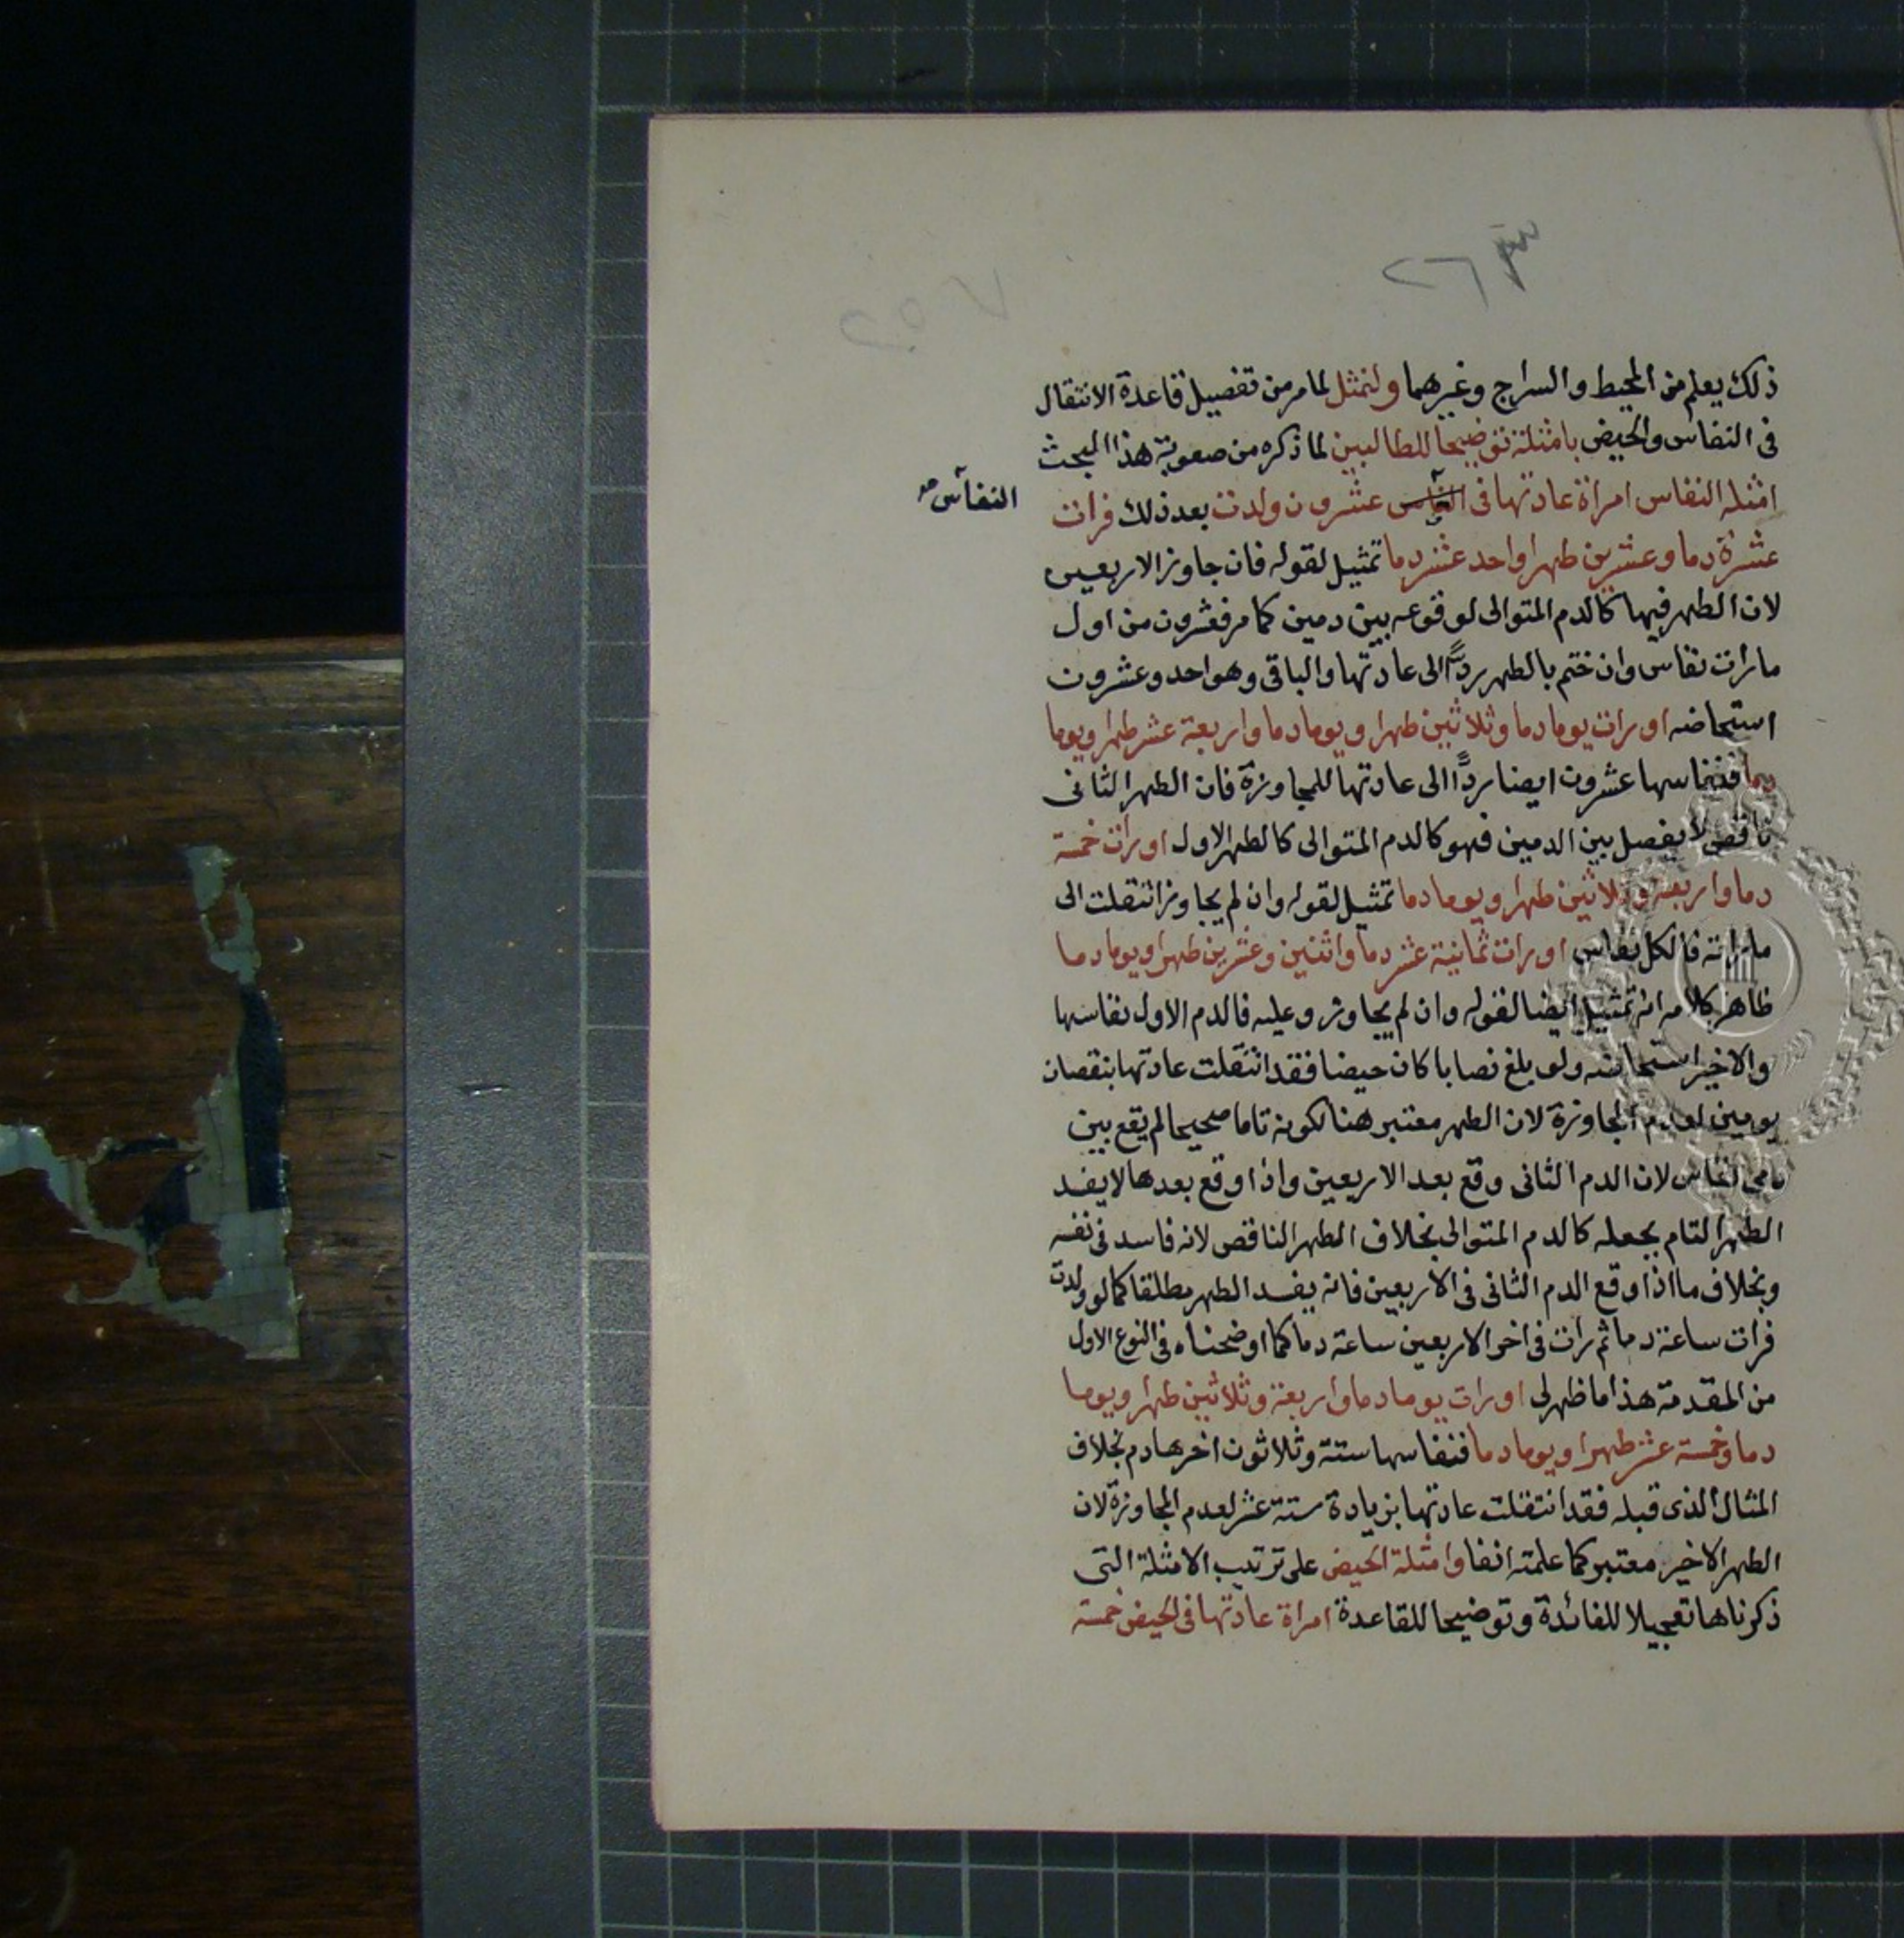 ٢٦
٢٥٧
ذلك يعلم من المحيط والسراج وغيرهما ولنمثل لما مر من تفصيل قاعدة الانتقال
فى النفاس والحيض بامثلة توضيحا للطالبين لما ذكره من صعوبة هذا المبحث
امثلة النفاس امراة عادتها فى النفاس عشرون ولدت بعد ذلك فرات
النفاس صح
عشرة دما وعشرين طهرا واحد عشر دما تمثيل لقوله فان جاوز الاربعين
لان الطهر فيها كالدم المتوالى لوقوعه بين دمين كما مر فعشرون من اول
ما رات نفاس وان ختم بالطهر ردًّا الى عادتها والباقى وهو احد وعشرون
استحاضه او رات يوما دما وثلاثين طهرا ويوما دما واربعة عشر طهرا ويوما
دما فنفاسها عشرون ايضا ردًّا الى عادتها للمجاوزة فان الطهر الثانى
ناقص لا يفصل بين الدمين فهو كالدم المتوالى كالطهر الاول او رات خمسة
دما واربعة وثلاثين طهرا ويوما دما تمثيل لقوله وان لم يجاوز انتقلت الى
ما راته فالكل نفاس او رات ثمانية عشر دما واثنين وعشرين طهرا ويوما دما
ظاهر كلامه انه تمثيل ايضا لقوله وان لم يجاوز وعليه فالدم الاول نفاسها
والاخير استحاضه ولو بلغ نصابا كان حيضا فقد انتقلت عادتها بنقصان
يومين لعدم المجاوزة لان الطهر معتبر هنا لكونه تاما صحيحا لم يقع بين
دمى نفاس لان الدم الثانى وقع بعد الاربعين واذا وقع بعدها لا يفسد
الطهر التام بجعله كالدم المتوالى بخلاف الطهر الناقص لانه فاسد فى نفسه
وبخلاف ما اذا وقع الدم الثانى فى الاربعين فانه يفسد الطهر مطلقا كما لو ولدت
فرات ساعة دما ثم رات فى اخر الاربعين ساعة دما كما اوضحناه فى النوع الاول
من المقدمة هذا ما ظهر لى او رات يوما دما واربعة وثلاثين طهرا ويوما
دما وخمسة عشر طهرا ويوما دما فنفاسها ستة وثلاثون اخرها دم بخلاف
المثال الذى قبله فقد انتقلت عادتها بزيادة ستة عشر لعدم المجاوزة لان
الطهر الاخير معتبر كما علمته انفا وامثلة الحيض على ترتيب الامثلة التى
ذكرناها تعجيلا للفائدة وتوضيحا للقاعدة امراة عادتها فى الحيض خمسة